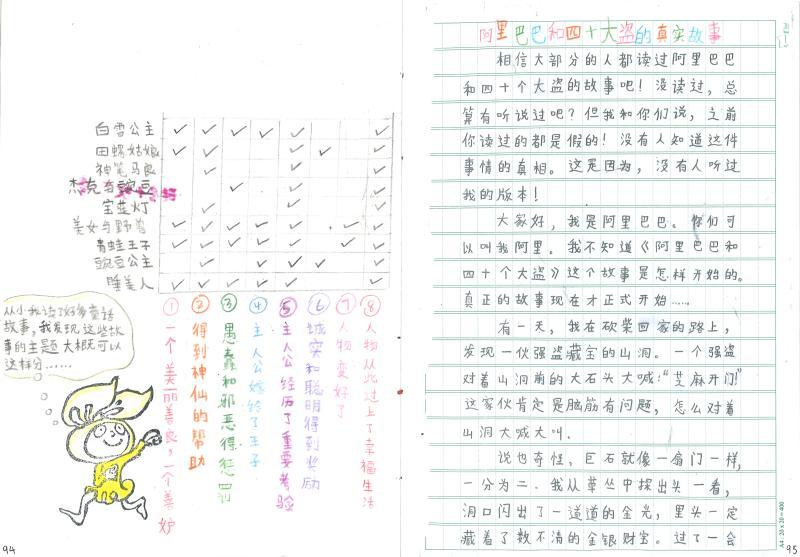 白雪公主
田螺姑娘
神笔马良
杰克与豌豆
宝莲灯
美女与野兽
青蛙王子
豌豆公主
睡美人
① 一个美丽善良，一个善妒
② 得到神仙的帮助
③ 愚蠢和邪恶得惩罚
④ 主人公嫁给了王子
⑤ 主人公经历了重要考验
⑥ 诚实和聪明得到奖励
⑦ 人物变好了
⑧ 人物从此过上了幸福生活
从小我读了好多童话
故事，我发现这些故
事的主题大概可以
这样分……
94
阿里巴巴和四十大盗的真实故事
相信大部分的人都读过阿里巴巴
和四十个大盗的故事吧！没读过，总
算有听说过吧？但我和你们说，之前
你读过的都是假的！没有人知道这件
事情的真相。这是因为，没有人听过
我的版本！
大家好，我是阿里巴巴。你们可
以叫我阿里。我不知道《阿里巴巴和
四十个大盗》这个故事是怎样开始的。
真正的故事现在才正式开始……
有一天，我在砍柴回家的路上，
发现一伙强盗藏宝的山洞。一个强盗
对着山洞前的大石头大喊：“芝麻开门！”
这家伙肯定是脑筋有问题，怎么对着
山洞大喊大叫．
说也奇怪，巨石就像一扇门一样，
一分为二．我从草丛中探出头一看，
洞口闪出了一道道的金光，里头一定
藏着了数不清的金银财宝。过了一会
A4：20×20＝400
95